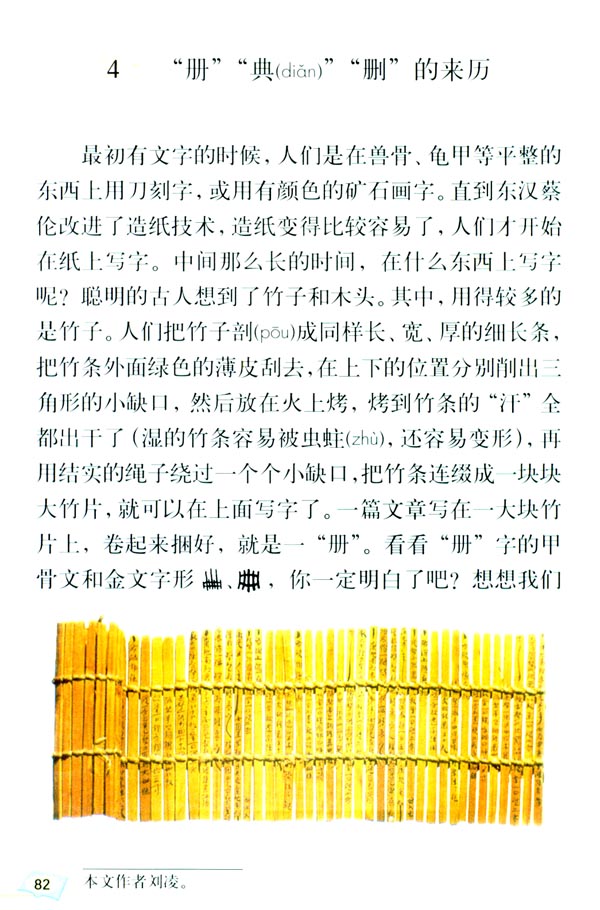 4 “册”“典(diǎn)”“删”的来历
最初有文字的时候，人们是在兽骨、龟甲等平整的
东西上用刀刻字，或用有颜色的矿石画字。直到东汉蔡
伦改进了造纸技术，造纸变得比较容易了，人们才开始
在纸上写字。中间那么长的时间，在什么东西上写字
呢？聪明的古人想到了竹子和木头。其中，用得较多的
是竹子。人们把竹子剖(pōu)成同样长、宽、厚的细长条，
把竹条外面绿色的薄皮刮去，在上下的位置分别削出三
角形的小缺口，然后放在火上烤，烤到竹条的“汗”全
都出干了（湿的竹条容易被虫蛀(zhù)，还容易变形），再
用结实的绳子绕过一个个小缺口，把竹条连缀成一块块
大竹片，就可以在上面写字了。一篇文章写在一大块竹
片上，卷起来捆好，就是一“册”。看看“册”字的甲
骨文和金文字形、，你一定明白了吧？想想我们
82
本文作者刘凌。